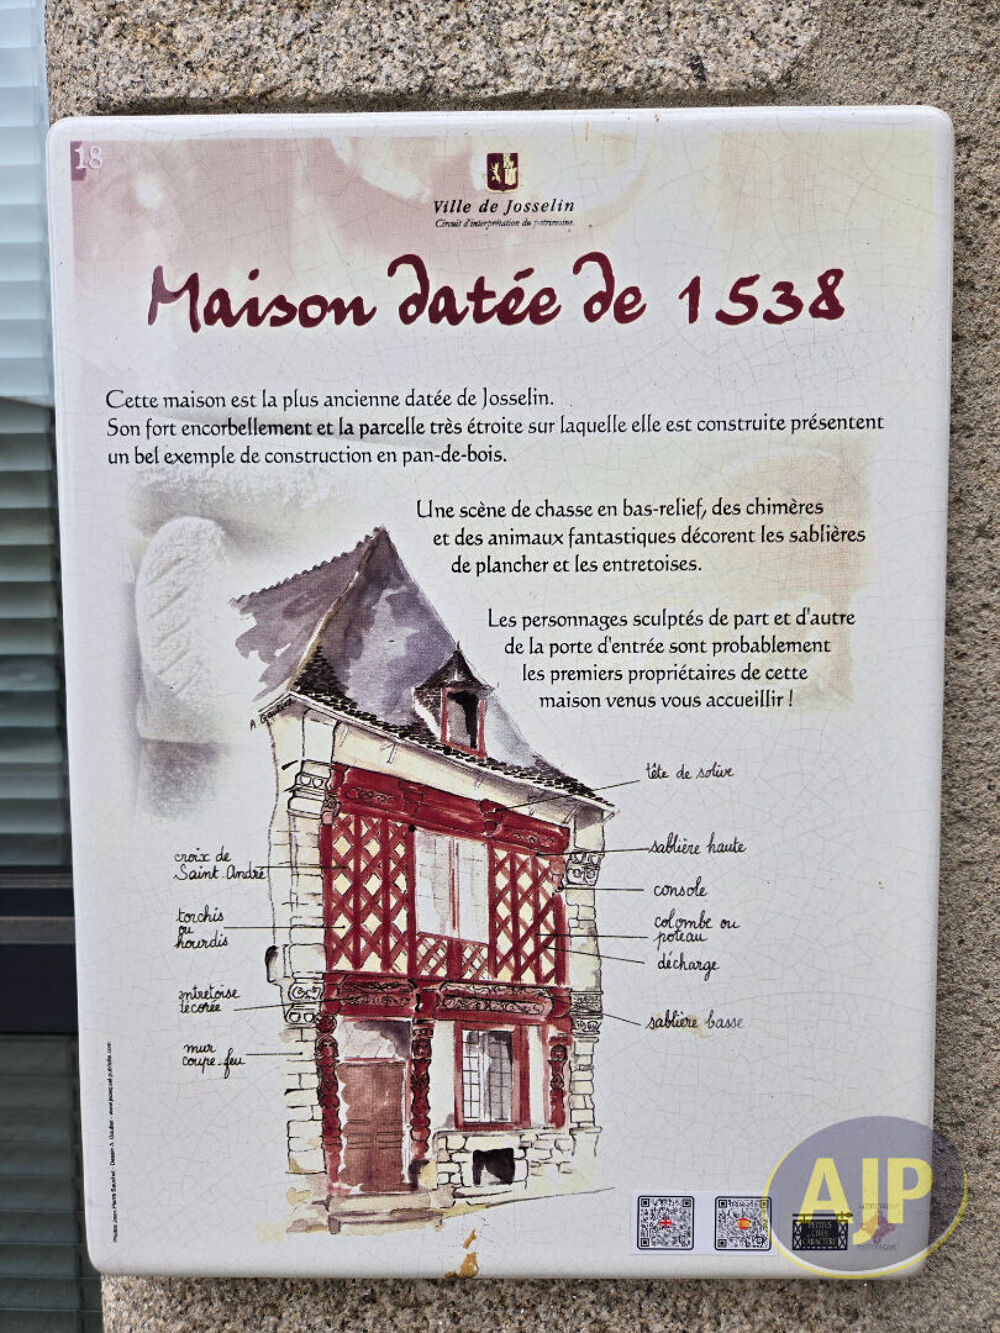 18
Ville de Josselin
Circuit d'interprétation du patrimoine
Maison datée de 1538
Cette maison est la plus ancienne datée de Josselin.
Son fort encorbellement et la parcelle très étroite sur laquelle elle est construite présentent
un bel exemple de construction en pan-de-bois.
Une scène de chasse en bas-relief, des chimères
et des animaux fantastiques décorent les sablières
de plancher et les entretoises.
Les personnages sculptés de part et d'autre
de la porte d'entrée sont probablement
les premiers propriétaires de cette
maison venus vous accueillir !
A Gautier
tête de solive
croix de
Saint André
sablière haute
console
torchis
ou
hourdis
colombe ou
poteau
décharge
entretoise
décorée
sablière basse
mur
coupe-feu
PETITES
CITÉS
CARACTÈRE
AJP